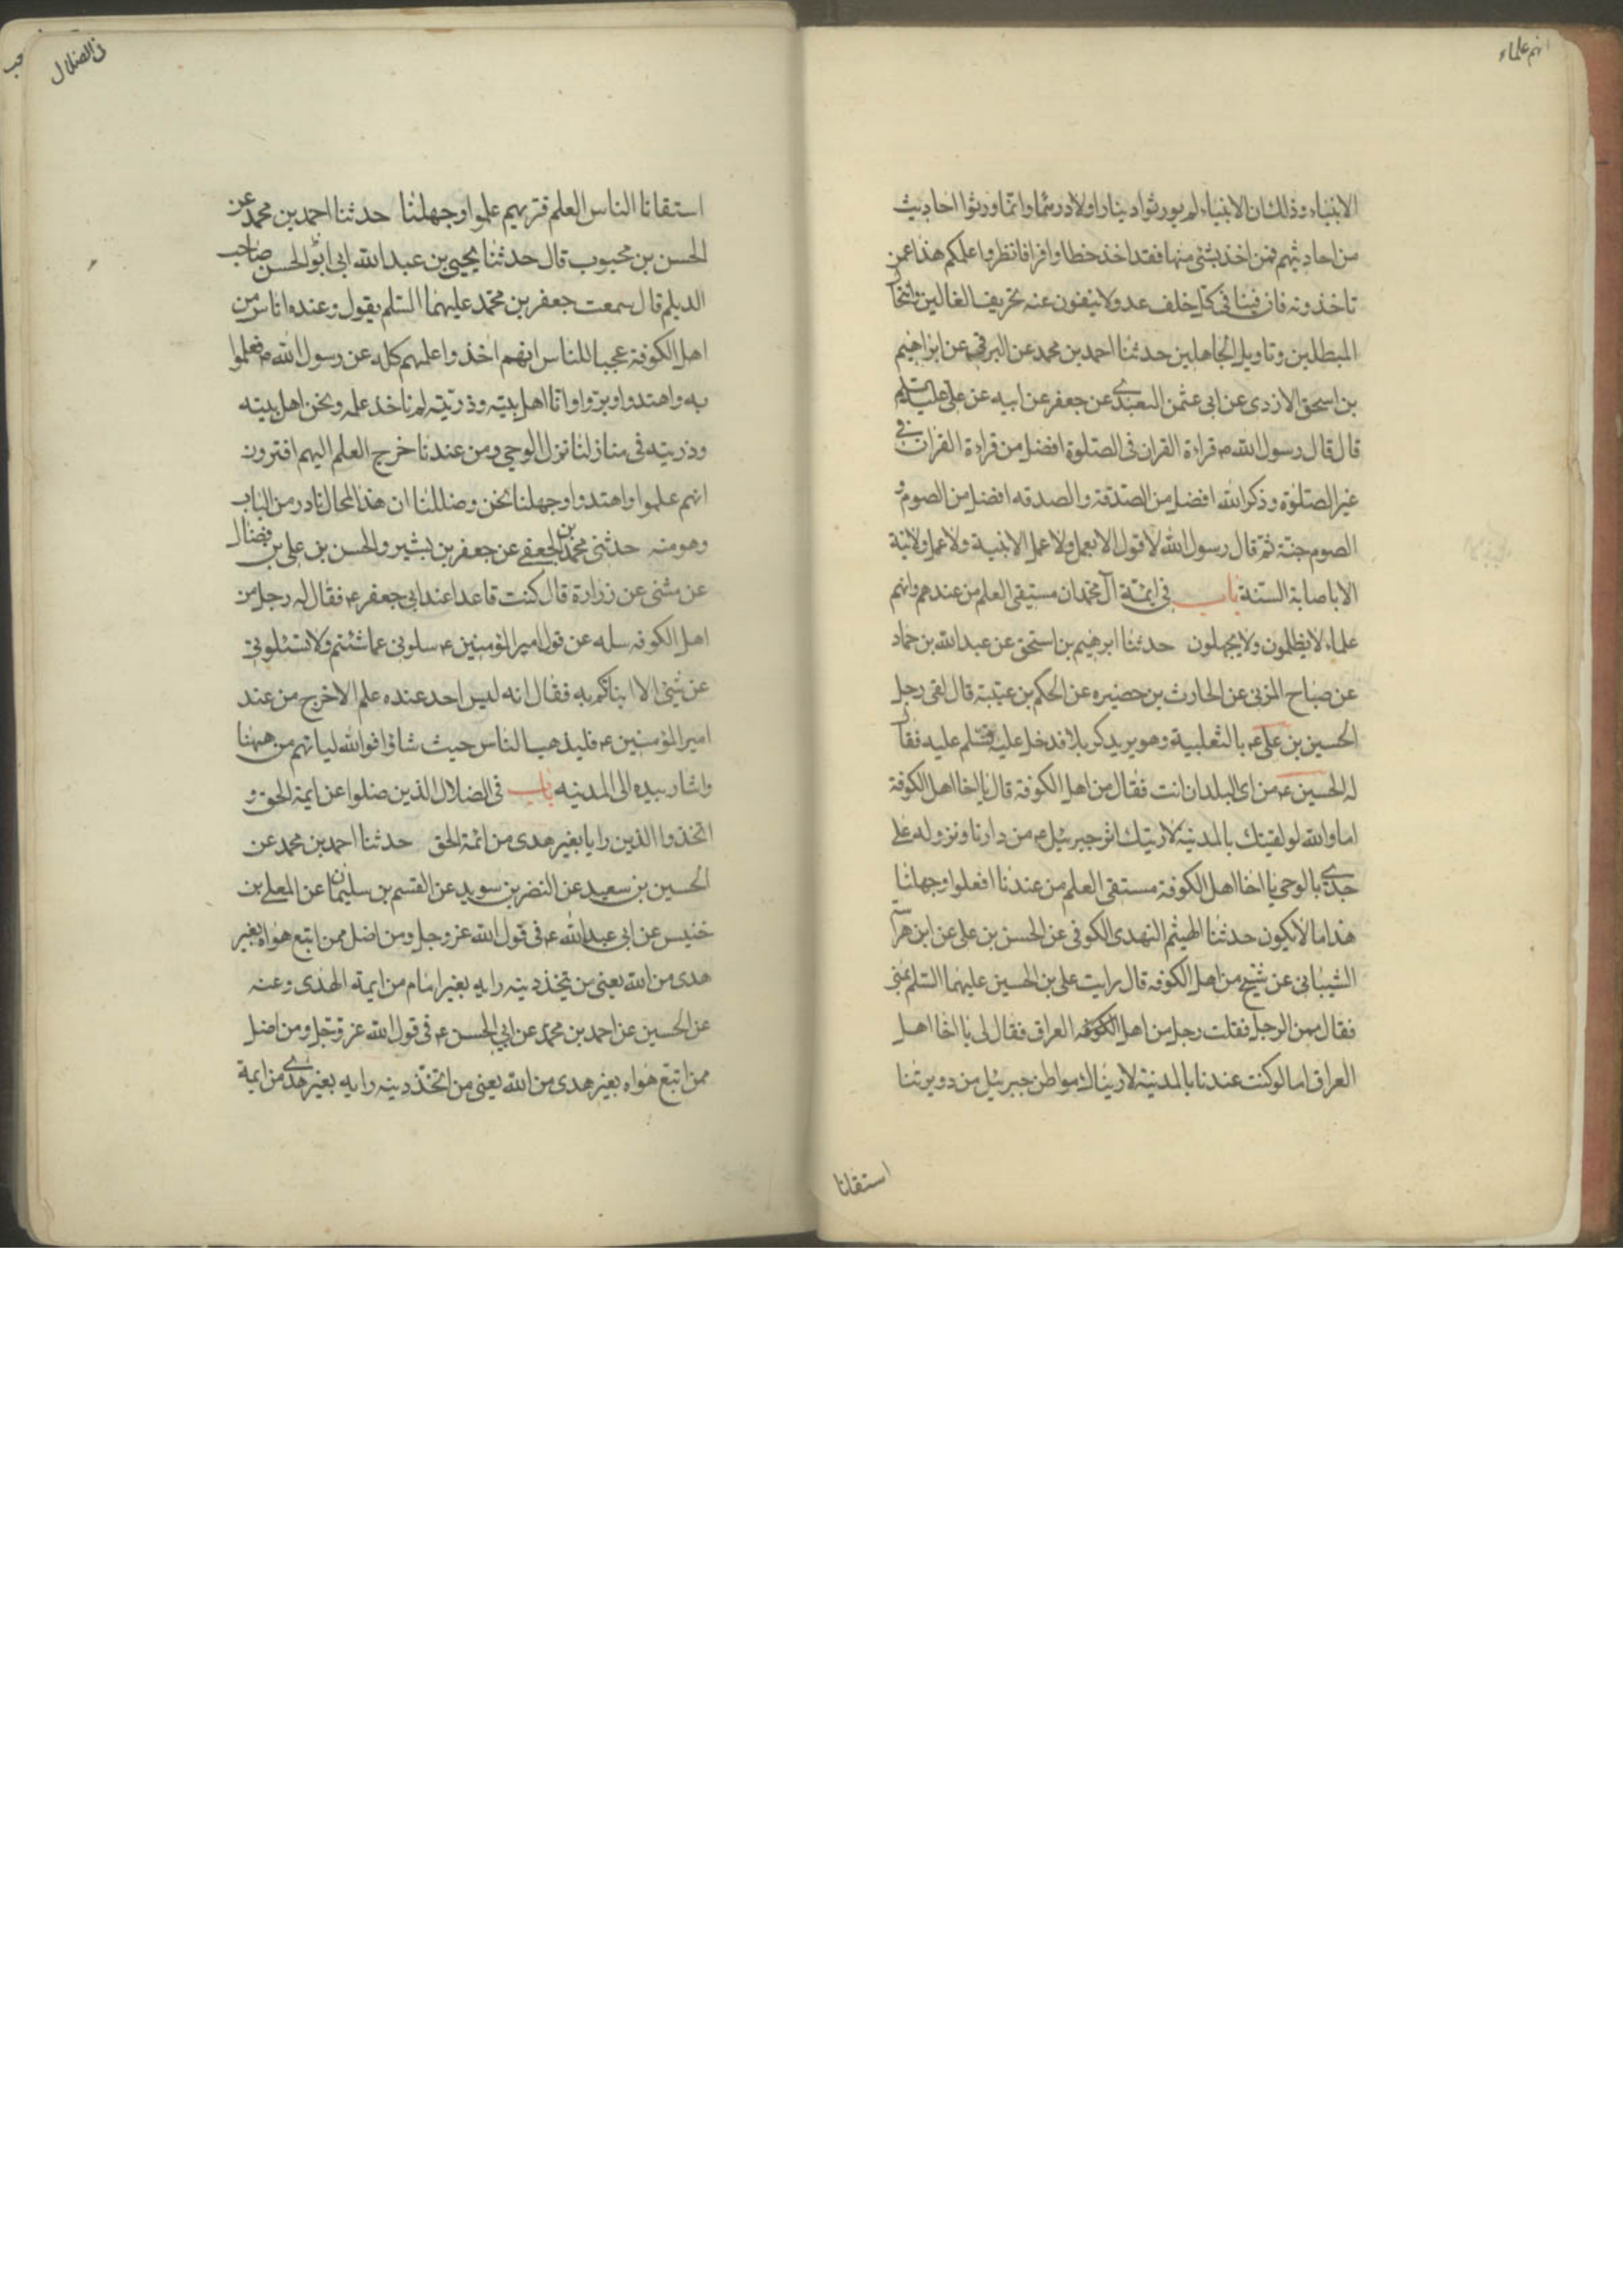 انهم علماء
الانبياء وذلك ان الانبياء لم يورثوا دينارا ولا درهما وانما ورثوا احاديث
من احاديثهم فمن اخذ بشئ منها فقد اخذ حظا وافرا فانظروا علمكم هذا عمن
تاخذونه فان فينا في كل خلف عدولا ينفون عنه تحريف الغالين وانتحال
المبطلين وتاويل الجاهلين حدثنا احمد بن محمد عن البرقي عن ابراهيم
بن اسحق الازدي عن ابي عثمن العبدي عن جعفر عن ابيه عن علي عليه السلم
قال قال رسول الله ص قراءة القران في الصلوة افضل من قراءة القران في
غير الصلوة وذكر الله افضل من الصدقة والصدقه افضل من الصوم و
الصوم جنة ثم قال رسول الله لا قول الا بعمل ولا عمل الا بنية ولا عمل ولا نية
الا باصابة السنة باب في ائمة آل محمد ان مستقى العلم من عندهم وانهم
علماء لا يظلمون ولا يجهلون حدثنا ابرهيم بن اسحق عن عبد الله بن حماد
عن صباح المزني عن الحارث بن حضيره عن الحكم بن عتيبة قال لقى رجل
الحسين بن علي ع بالثعلبية وهو يريد كربلا فدخل عليه فسلم عليه فقال
له الحسين ع من اى البلدان انت فقال من اهل الكوفة قال يا اخا اهل الكوفة
اما والله لو لقيتك بالمدينة لاريتك اثر جبرئيل ع من دارنا ونزوله على
جدي بالوحي يا اخا اهل الكوفة مستقى العلم من عندنا افعلموا وجهلنا
هذا ما لا يكون حدثنا الهيثم النهدى الكوفى عن الحسن بن على عن ابن هراسة
الشيبانى عن شيخ من اهل الكوفه قال رايت على بن الحسين عليهما السلم بمنى
فقال ممن الرجل فقلت رجل من اهل الكوفه العراق فقال لى يا اخا اهل
العراق اما لو كنت عندنا بالمدينة لاريناك مواطن جبرئيل من دويرتنا
استقانا
في الضلال
استقانا الناس العلم فتريهم علموا وجهلنا حدثنا احمد بن محمد عن
الحسن بن محبوب قال حدثنا يحيى بن عبد الله ابى ابو الحسن صاحب
الديلم قال سمعت جعفر بن محمد عليهما السلم يقول وعنده اناس من
اهل الكوفة عجبا للناس انهم اخذوا علمهم كله عن رسول الله ص فعلموا
به واهتدوا ويروا وانا اهل بيته وذريته لم ناخذ علمه ونحن اهل بيته
وذريته فى منازلنا نزل الوحي ومن عندنا خرج العلم اليهم افترون
انهم علموا واهتدوا وجهلنا نحن وضللنا ان هذا لمحال نادر من الباب
وهو منه حدثنى محمد بن الجعفي عن جعفر بن بشير والحسن بن على بن فضال
عن مثنى عن زرارة قال كنت قاعدا عند ابى جعفر ع فقال له رجل من
اهل الكوفه سله عن قول امير المؤمنين ع سلونى عما شئتم ولا تسئلونى
عن شئ الا انباتكم به فقال انه ليس احد عنده علم الا خرج من عند
امير المؤمنين ع فليذهب الناس حيث شاؤا فو الله لياتهم من ههنا
واشار بيده الى المدينه باب فى الضلال الذين ضلوا عن ايمة الحق و
اتخذوا الدين رايا بغير هدى من ائمة الحق حدثنا احمد بن محمد عن
الحسين بن سعيد عن النضر بن سويد عن القسم بن سليمان عن المعلى بن
خنيس عن ابى عبد الله ع فى قول الله عز وجل ومن اضل ممن اتبع هواه بغير
هدى من الله يعنى من يتخذ دينه رايه بغير امام من ايمة الهدى وعنه
عن الحسين عن احمد بن محمد عن ابي الحسن ع فى قول الله عز وجل ومن اضل
ممن اتبع هواه بغير هدى من الله يعنى من اتخذ دينه رايه بغير هدي من ايمة